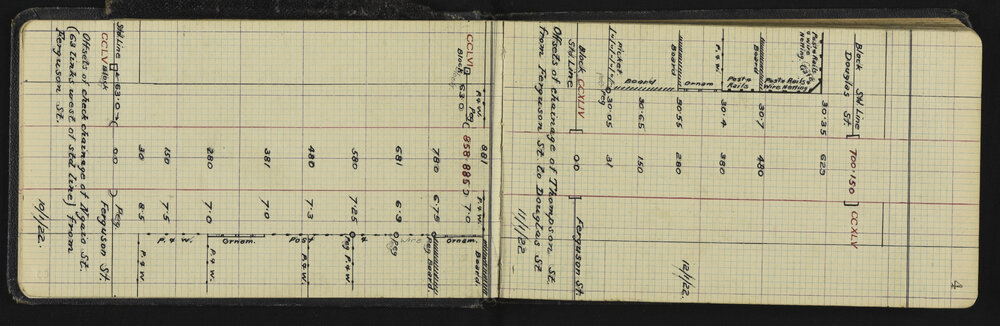 4
12/1/22.
Block Std Line 700·150 CCXLV
Douglas St.
30·35 623
Post & Rails
& wire
Netting
Post & Rails
Wire Netting
30·7 480
Board
Post &
Rails
30·4 380
P. & W.
Ornam
30·55 280
Board
30·65 150
Board
Picket
30·05 31
Peg
Block CCXLIV 00 Ferguson St.
Std Line
Offsets of chainage of Thompson St.
from Ferguson St to Douglas St
11/1/22
881 P. & W.
P. & W. Board
CCLVI 63·0 Peg 858·885 7·0
Block
Ornam.
780 6·75
Peg Board.
681 6·9
Peg
580 7·25
Peg
P. & W.
480 7·3
Post &
P. & W.
381 7·0
Ornam.
280 7·0
P. & W.
150 7·5
P. & W.
30 8·5
P. & W.
Std Line 63·0 00 Peg
CCLV Block Ferguson St.
Offsets of check chainage of Ngaio St.
(63 links west of std line) from
Ferguson St.
10/1/22.